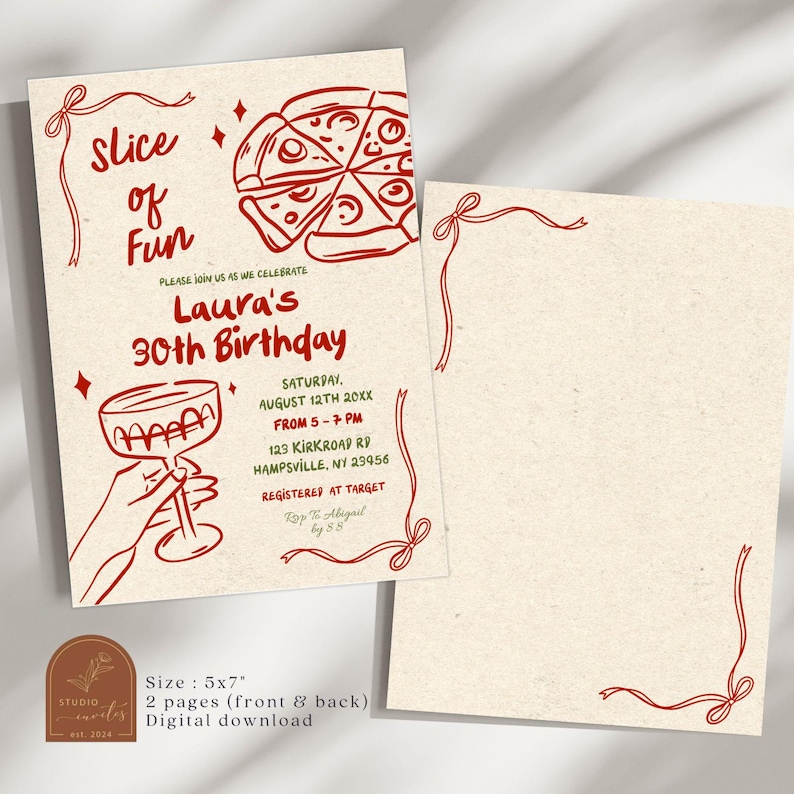 Slice
of
Fun
PLEASE JOIN US AS WE CELEBRATE
Laura's
30th Birthday
SATURDAY,
AUGUST 12TH 20XX
FROM 5 - 7 PM
123 KIRKROAD RD
HAMPSVILLE, NY 23456
REGISTERED AT TARGET
Rsvp To Abigail
by 8.8
STUDIO
invites
est. 2024
Size : 5x7"
2 pages (front & back)
Digital download